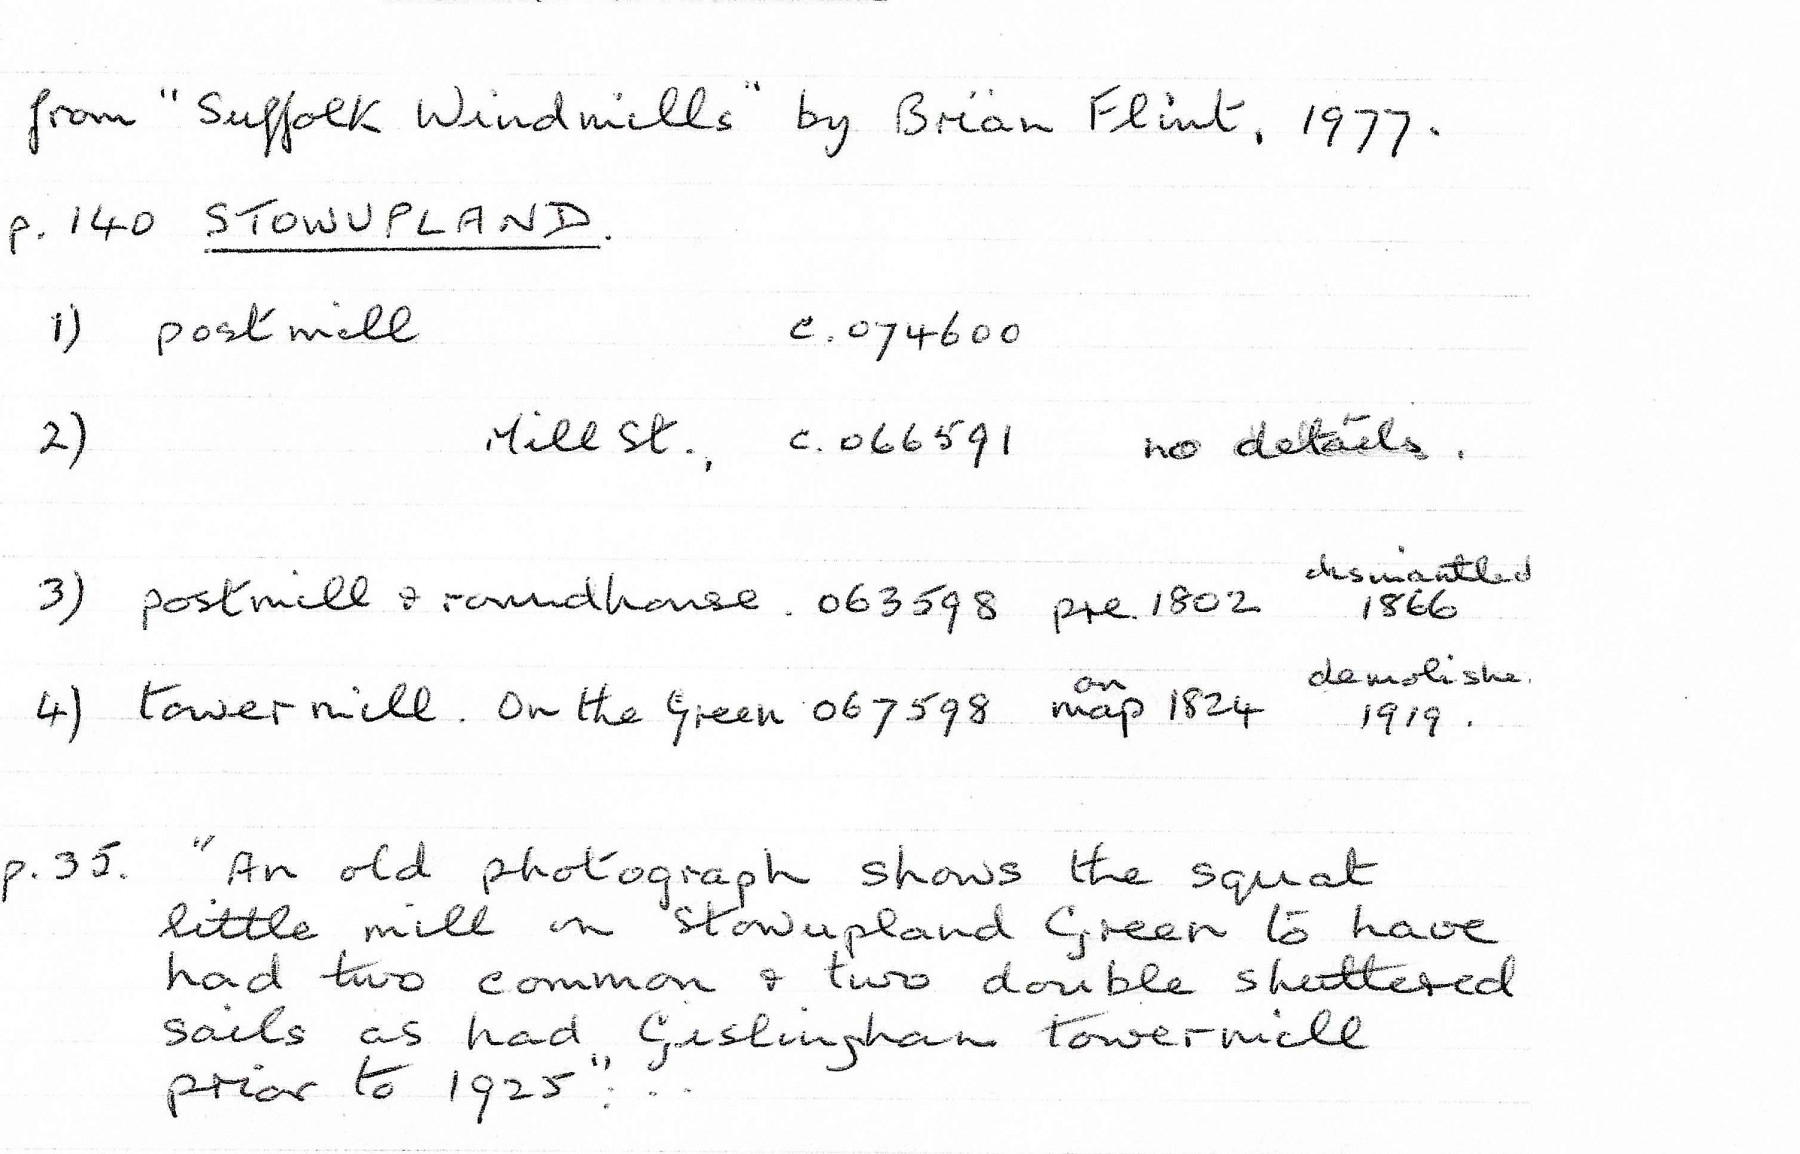 from "Suffolk Windmills" by Brian Flint, 1977.
p. 140 STOWUPLAND.
1) postmill c. 074600
2) Mill St., c. 066591 no details.
3) postmill & roundhouse. 063598 pre. 1802 dismantled 1866
4) towermill. On the Green 067598 on map 1824 demolishe. 1919.
p. 35. "An old photograph shows the squat
little mill on Stowupland Green to have
had two common & two double shuttered
sails as had Gislingham towermill
prior to 1925"...